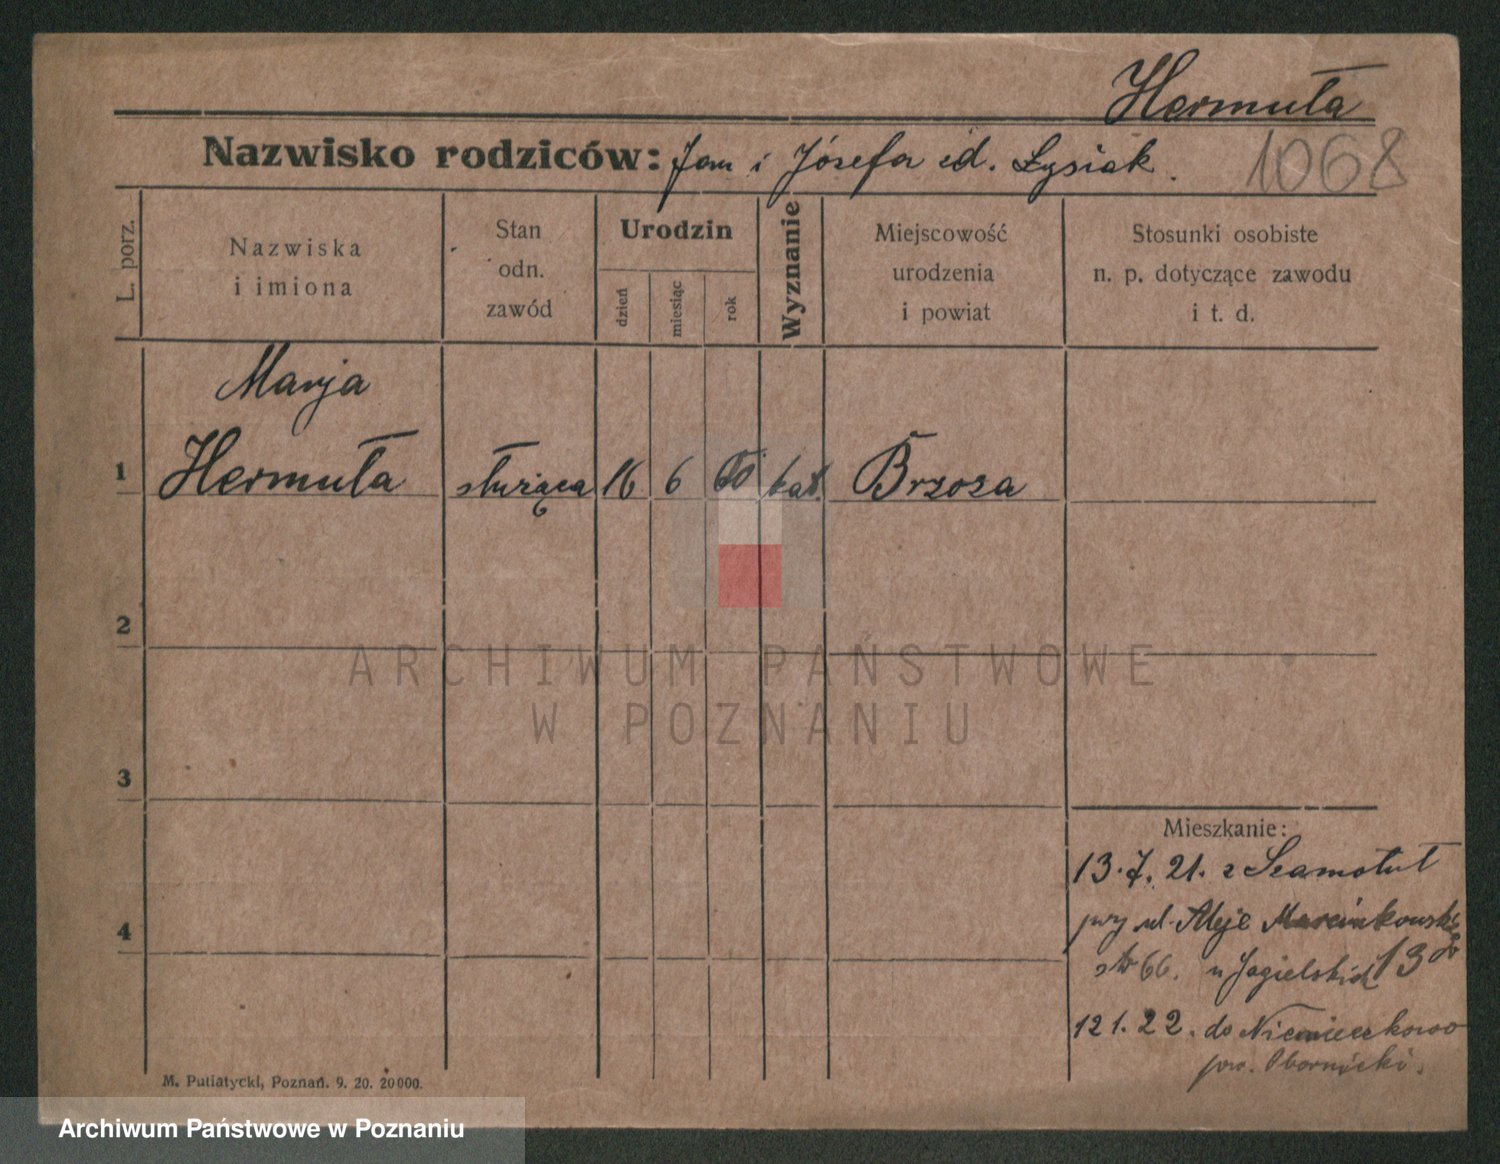 Hermuła
Nazwisko rodziców: Jan i Józefa zd. Łysiak.
1068
L. porz.
Nazwiska
i imiona
Stan
odn.
zawód
Urodzin
dzień
miesiąc
rok
Wyznanie
Miejscowość
urodzenia
i powiat
Stosunki osobiste
n. p. dotyczące zawodu
i t. d.
Marja
1 Hermuła służąca 16 6 kat. Brzoza
2
3
4
Mieszkanie:
13.7.21. z Szamotuł
przy ul. Aleje Marcinkowski
str 66. u Jagielskich 13
12 1. 22. do Niemieczkowo
pow. Obornicki.
M. Putiatycki, Poznań. 9. 20. 20000.
ARCHIWUM PAŃSTWOWE
W POZNANIU
Archiwum Państwowe w Poznaniu